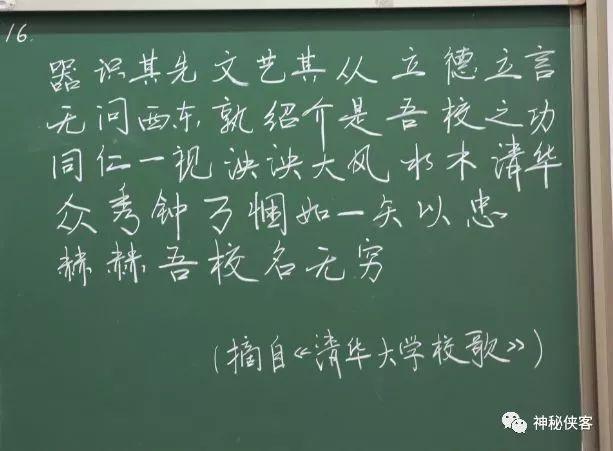 16.
器识其先文艺其从立德立言
无问西东孰绍介是吾校之功
同仁一视泱泱大风水木清华
众秀钟万悃如一矢以忠
赫赫吾校名无穷
(摘自《清华大学校歌》)
神秘侠客